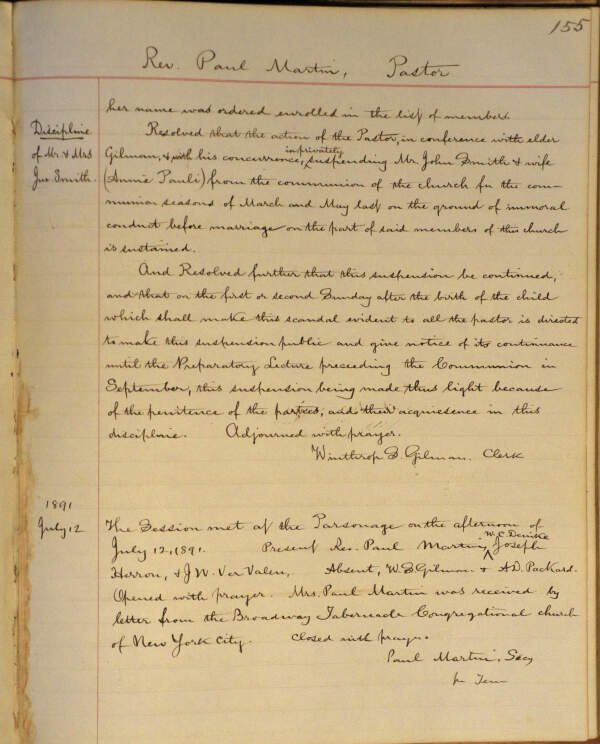 155
Rev. Paul Martin, Pastor
her name was ordered enrolled in the list of members.
Discipline
of Mr. & Mrs
Jno. Smith.
Resolved that the action of the Pastor, in conference with elder
Gilman, & with his concurrence, in privately suspending Mr. John Smith & wife
(Annie Pauli) from the communion of the church for the com-
munion seasons of March and May last on the ground of immoral
conduct before marriage on the part of said members of this church
is sustained.
And Resolved further that this suspension be continued,
and that on the first or second Sunday after the birth of the child
which shall make this scandal evident to all the pastor is directed
to make this suspension public and give notice of its continuance
until the Preparatory Lecture preceding the Communion in
September, this suspension being made thus light because
of the penitence of the parties, and their acquiesence in this
discipline. Adjourned with prayer.
Winthrop S. Gilman. Clerk
1891
July 12
The Session met at the Parsonage on the afternoon of
July 12, 1891. Present Rev. Paul Martin, W. C. Joseph
Herron, & J. W. Ver Valen, Absent, W. S Gilman & A. D. Packard.
Opened with prayer. Mrs. Paul Martin was received by
letter from the Broadway Tabernacle Congregational church
of New York City. Closed with prayer.
Paul Martin, Secy
pr Tem